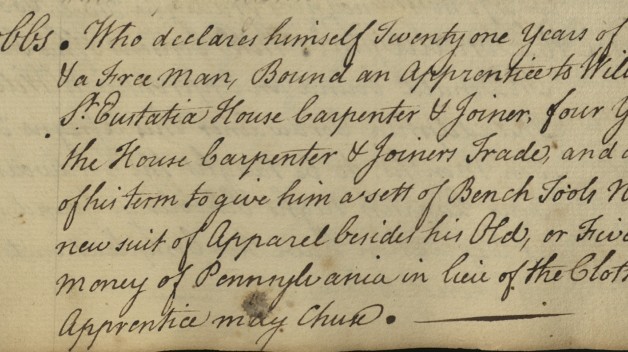 obbs. Who declares himself Twenty one Years of
& a Free Man, Bound an Apprentice to Will
St. Eustatia House Carpenter & Joiner, four Y
the House Carpenter & Joiners Trade, and a
of his term to give him a sett of Bench Tools N
new suit of Apparel besides his Old, or Five
money of Pennsylvania in lieu of the Cloth
Apprentice may Chuse.